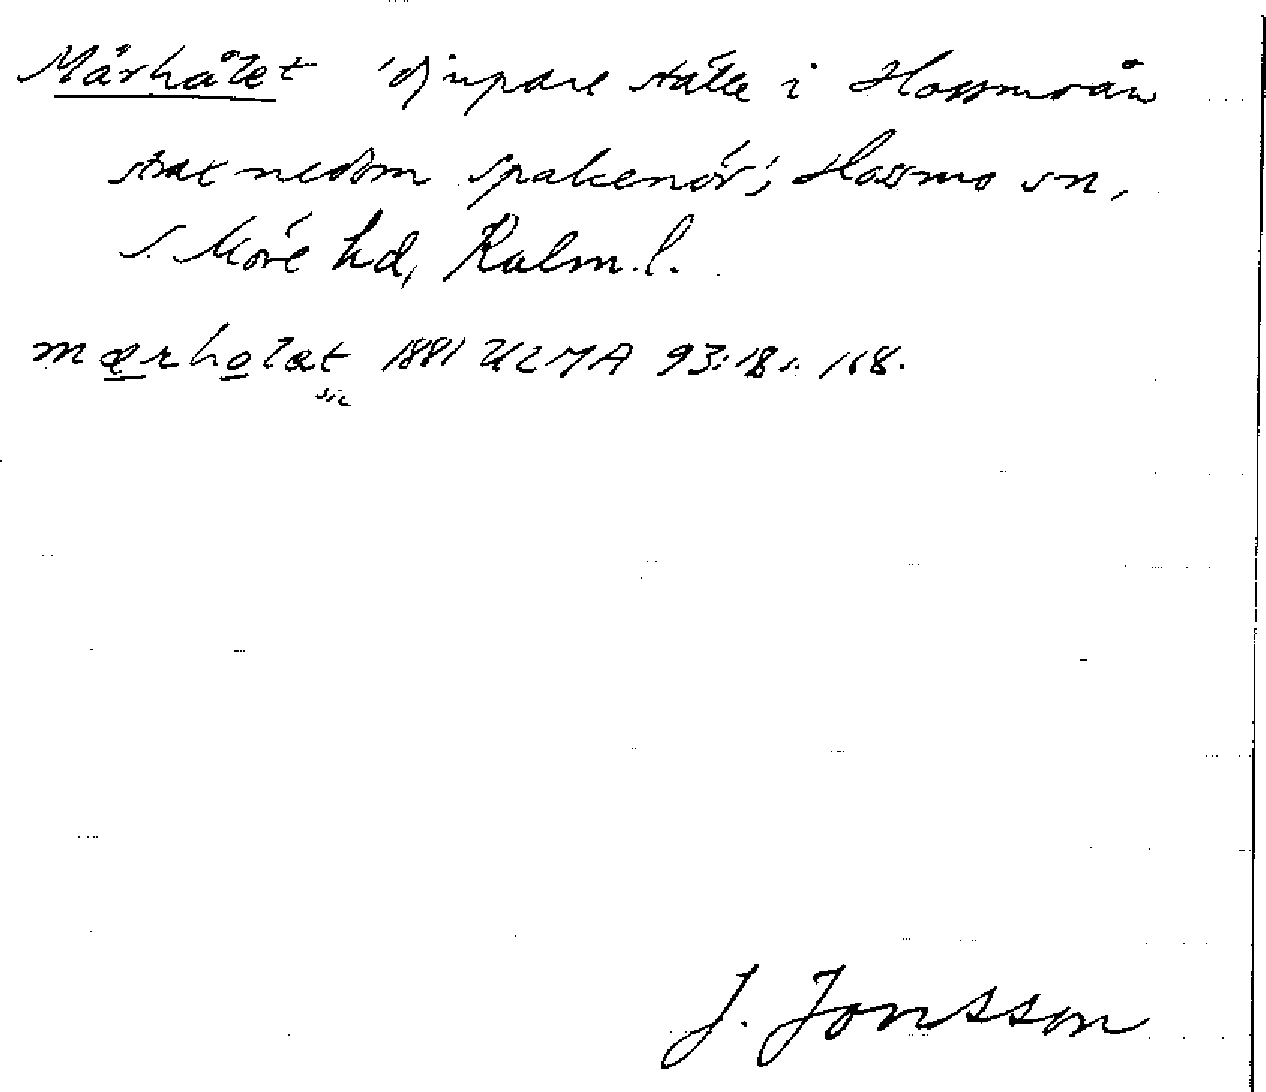 Mårhålet 'djupare ställe i Hossmoån
strax nedom Spakenör'; Hossmo sn,
S. Möre hd, Kalm. l.
mærholæt 1881 ULMA 93:18 s. 168.
sic
J. Jonsson